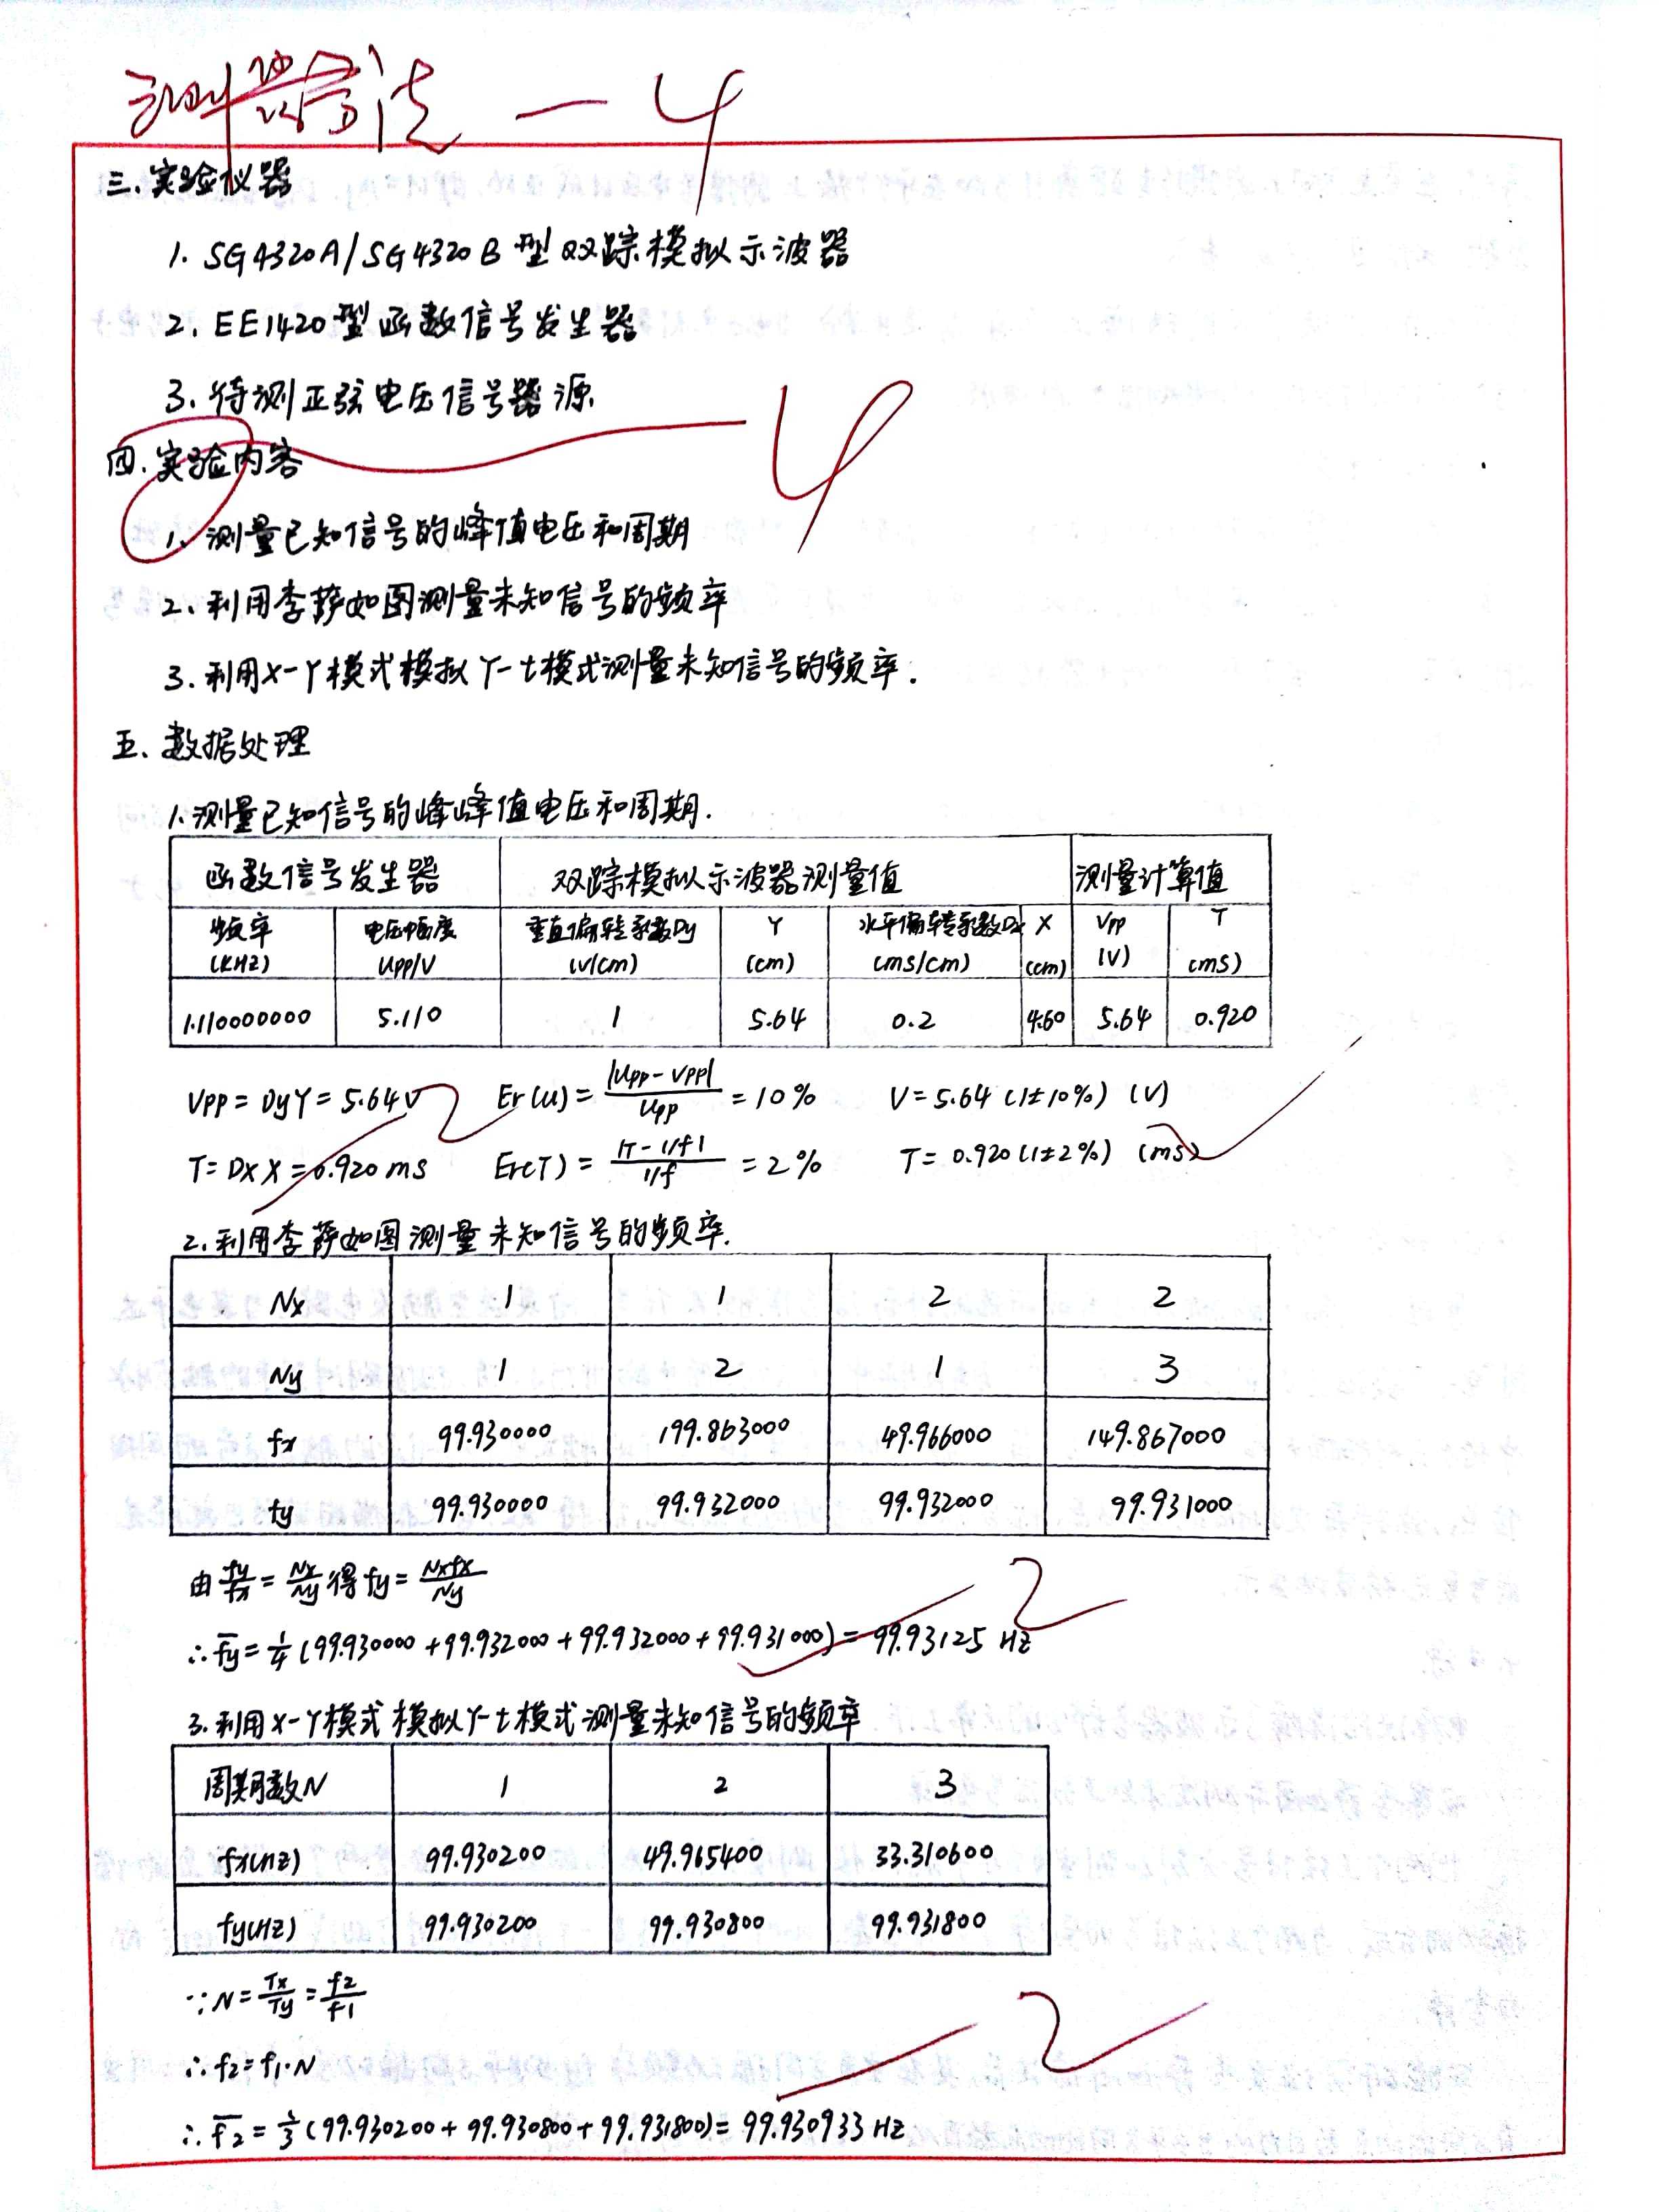 一 4
三.实验仪器
1. SG4320A/SG4320B型双踪模拟示波器
2. EE1420型函数信号发生器
3. 待测正弦电压信号源.
4
四.实验内容
1. 测量已知信号的峰值电压和周期
2. 利用李萨如图测量未知信号的频率
3. 利用X-Y模式模拟Y-t模式测量未知信号的频率.
五.数据处理
1.测量已知信号的峰峰值电压和周期.
函数信号发生器 双踪模拟示波器测量值 测量计算值
频率(KHZ) 电压幅度Upp/V 垂直偏转系数Dy(V/cm) Y(cm) 水平偏转系数Dx(ms/cm) X(cm) Vpp(V) T(ms)
1.110000000 5.110 1 5.64 0.2 4.60 5.64 0.920
Vpp = DyY = 5.64V Er(u) = |Upp-Vpp|/Upp = 10% V = 5.64(1±10%) (V)
2
T = DxX = 0.920ms Er(T) = |T-1/f|/1/f = 2% T = 0.920(1±2%) (ms)
2.利用李萨如图测量未知信号的频率.
Nx 1 1 2 2
Ny 1 2 1 3
fx 99.930000 199.863000 49.966000 149.867000
fy 99.930000 99.932000 99.932000 99.931000
由fy/fx = Nx/Ny得fy = Nxfx/Ny
2
∴f̅y = 1/4(99.930000+99.932000+99.932000+99.931000) = 99.93125 HZ
3.利用X-Y模式模拟Y-t模式测量未知信号的频率
周期数N 1 2 3
fx(HZ) 99.930200 49.965400 33.310600
fy(HZ) 99.930200 99.930800 99.931800
∵N = Tx/Ty = f2/f1
2
∴f2 = f1·N
∴f̅2 = 1/3(99.930200+99.930800+99.931800) = 99.930933 HZ